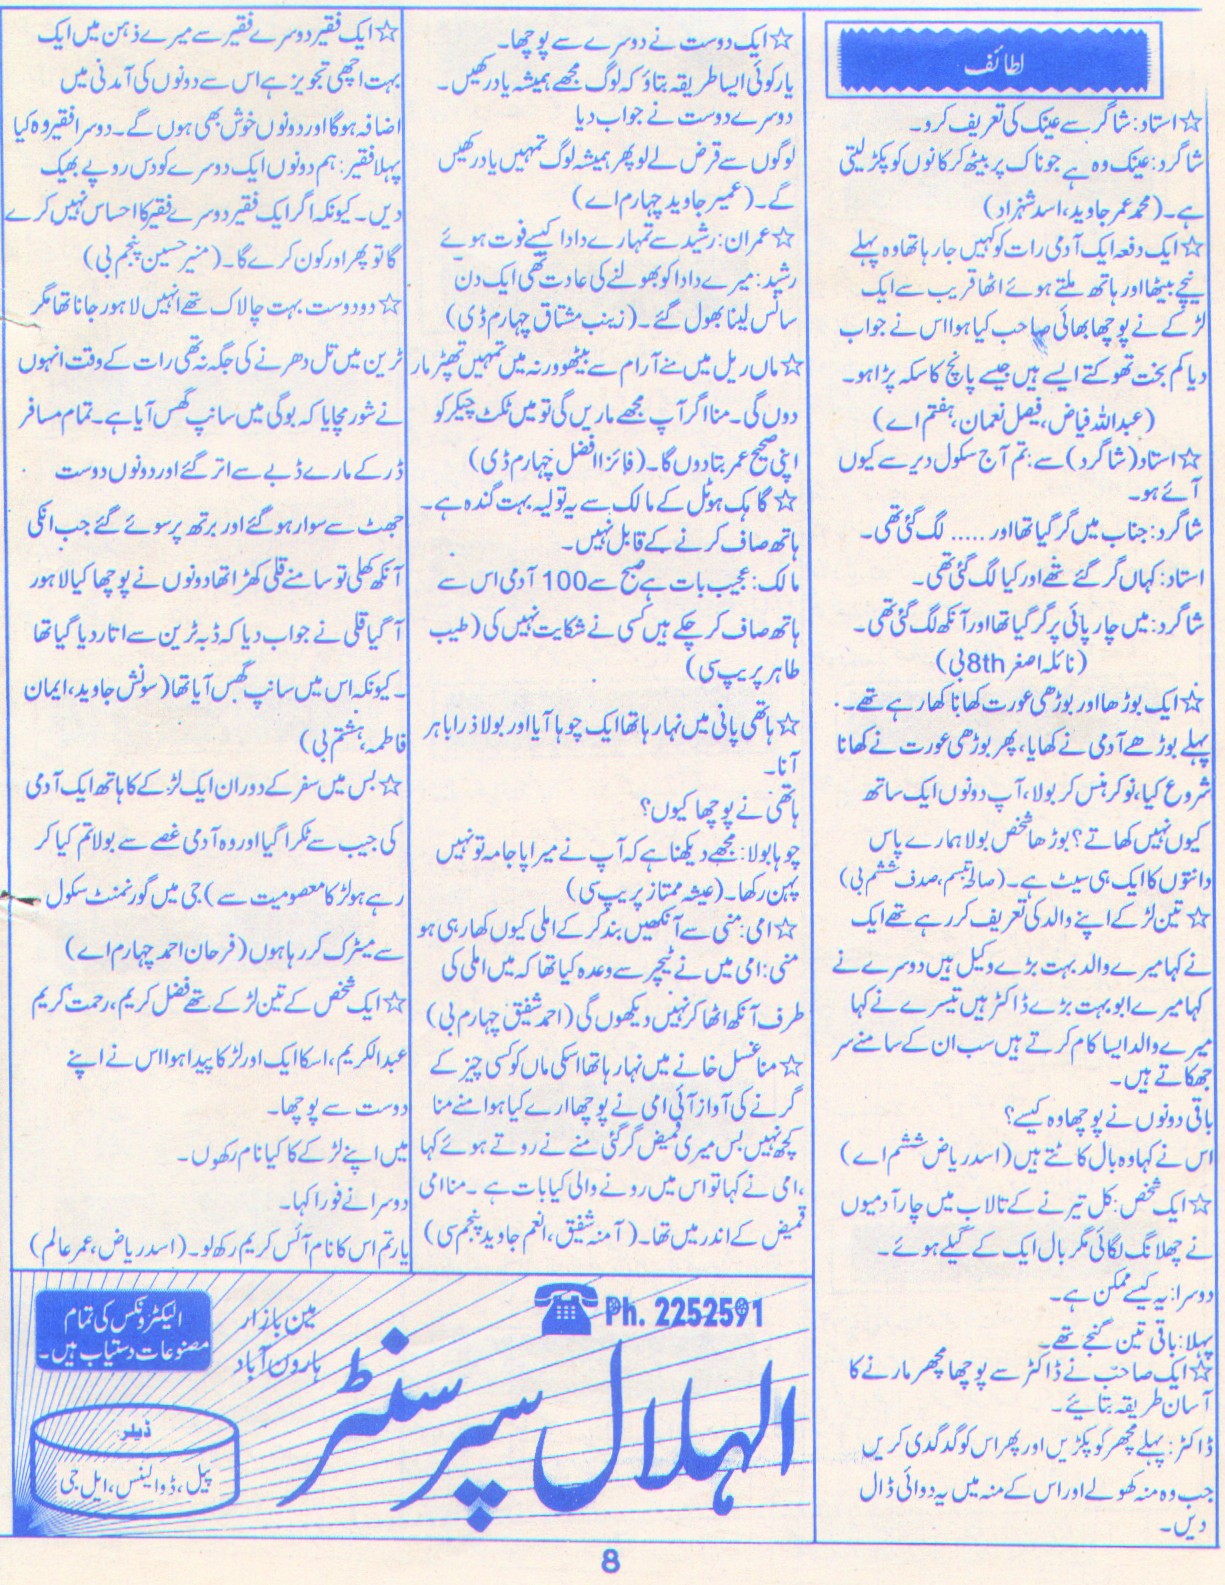 لطائف
☆استاد: شاگر سے عینک کی تعریف کرو۔
شاگرد: عینک وہ ہے جو ناک پر بیٹھ کر کانوں کو پکڑ لیتی
ہے۔ (محمد عمر جاوید، اسد شہزاد)
☆ایک دفعہ ایک آدمی رات کو کہیں جا رہا تھا وہ پہلے
نیچے بیٹھا اور ہاتھ ملتے ہوئے اٹھا قریب سے ایک
لڑکے نے پوچھا بھائی صاحب کیا ہوا اس نے جواب
دیا کم بخت تھوکتے ایسے ہیں جیسے پانچ کا سکہ پڑا ہو۔
(عبداللہ فیاض، فیصل نعمان، ہفتم اے)
☆استاد (شاگرد) سے: تم آج سکول دیر سے کیوں
آئے ہو۔
شاگرد: جناب میں گر گیا تھا اور ..... لگ گئی تھی۔
استاد: کہاں گر گئے تھے اور کیا لگ گئی تھی۔
شاگرد: میں چارپائی پر گر گیا تھا اور آنکھ لگ گئی تھی۔
(نائلہ اصغر 8th بی)
☆ایک بوڑھا اور بوڑھی عورت کھانا کھا رہے تھے۔
پہلے بوڑھے آدمی نے کھایا، پھر بوڑھی عورت نے کھانا
شروع کیا، نوکر ہنس کر بولا، آپ دونوں ایک ساتھ
کیوں نہیں کھاتے؟ بوڑھا شخص بولا ہمارے پاس
دانتوں کا ایک ہی سیٹ ہے۔ (صالحہ تبسم، صدف ششم بی)
☆تین لڑکے اپنے والد کی تعریف کر رہے تھے ایک
نے کہا میرے والد بہت بڑے وکیل ہیں دوسرے نے
کہا میرے ابو بہت بڑے ڈاکٹر ہیں تیسرے نے کہا
میرے والد ایسا کام کرتے ہیں سب ان کے سامنے سر
جھکاتے ہیں۔
باقی دونوں نے پوچھا وہ کیسے؟
اس نے کہا وہ بال کاٹتے ہیں (اسد ریاض ششم اے)
☆ایک شخص: کل تیرنے کے تالاب میں چار آدمیوں
نے چھلانگ لگائی مگر بال ایک کے گیلے ہوئے۔
دوسرا: یہ کیسے ممکن ہے۔
پہلا: باقی تین گنجے تھے۔
☆ایک صاحب نے ڈاکٹر سے پوچھا مچھر مارنے کا
آسان طریقہ بتایئے۔
ڈاکٹر: پہلے مچھر کو پکڑیں اور پھر اس کو گدگدی کریں
جب وہ منہ کھولے اور اس کے منہ میں یہ دوائی ڈال
دیں۔
☆ایک دوست نے دوسرے سے پوچھا۔
یار کوئی ایسا طریقہ بتاؤ کہ لوگ مجھے ہمیشہ یاد رکھیں۔
دوسرے دوست نے جواب دیا
لوگوں سے قرض لے لو پھر ہمیشہ لوگ تمہیں یاد رکھیں
گے۔ (عمیر جاوید چہارم اے)
☆عمران: رشید سے تمہارے دادا کیسے فوت ہوئے
رشید: میرے دادا کو بھولنے کی عادت تھی ایک دن
سانس لینا بھول گئے۔ (زینب مشتاق چہارم ڈی)
☆ماں ریل میں منے آرام سے بیٹھو ورنہ میں تمہیں تھپڑ مار
دوں گی۔ منا اگر آپ مجھے ماریں گی تو میں ٹکٹ چیکر کو
اپنی صحیح عمر بتا دوں گا۔ (فائزا افضل چہارم ڈی)
☆گاہک ہوٹل کے مالک سے یہ تولیہ بہت گندہ ہے۔
ہاتھ صاف کرنے کے قابل نہیں۔
مالک: عجیب بات ہے صبح سے 100 آدمی اس سے
ہاتھ صاف کر چکے ہیں کسی نے شکایت نہیں کی (طیب
طاہر پریپ سی)
☆ہاتھی پانی میں نہا رہا تھا ایک چوہا آیا اور بولا ذرا باہر
آنا۔
ہاتھی نے پوچھا کیوں؟
چوہا بولا: مجھے دیکھنا ہے کہ آپ نے میرا پاجامہ تو نہیں
پہن رکھا۔ (عیشہ ممتاز پریپ سی)
☆امی: منی سے آنکھیں بند کر کے املی کیوں کھا رہی ہو
منی: امی میں نے ٹیچر سے وعدہ کیا تھا کہ میں املی کی
طرف آنکھ اٹھا کر نہیں دیکھوں گی (احمد شفیق چہارم بی)
☆منا غسل خانے میں نہا رہا تھا اسکی ماں کو کسی چیز کے
گرنے کی آواز آئی امی نے پوچھا ارے کیا ہوا منے منا
کچھ نہیں بس میری قمیض گر گئی منے نے روتے ہوئے کہا
،امی نے کہا تو اس میں رونے والی کیا بات ہے ۔ منا امی
قمیض کے اندر میں تھا۔ (آمنہ شفیق، انعم جاوید پنجم سی)
☆ایک فقیر دوسرے فقیر سے میرے ذہن میں ایک
بہت اچھی تجویز ہے اس سے دونوں کی آمدنی میں
اضافہ ہو گا اور دونوں خوش بھی ہوں گے۔ دوسرا فقیر وہ کیا
پہلا فقیر: ہم دونوں ایک دوسرے کو دس روپے بھیک
دیں۔ کیونکہ اگر ایک فقیر دوسرے فقیر کا احساس نہیں کرے
گا تو پھر اور کون کرے گا۔ (منیر حسین پنجم بی)
☆دو دوست بہت چالاک تھے انہیں لاہور جانا تھا مگر
ٹرین میں تل دھرنے کی جگہ نہ تھی رات کے وقت انہوں
نے شور مچایا کہ بوگی میں سانپ گھس آیا ہے۔ تمام مسافر
ڈر کے مارے ڈبے سے اتر گئے اور دونوں دوست
جھٹ سے سوار ہو گئے اور برتھ پر سوئے گئے جب انکی
آنکھ کھلی تو سامنے قلی کھڑا تھا دونوں نے پوچھا کیا لاہور
آ گیا قلی نے جواب دیا کہ ڈبہ ٹرین سے اتار دیا گیا تھا
۔ کیونکہ اس میں سانپ گھس آیا تھا (سونش جاوید، ایمان
فاطمہ، ہشتم بی)
☆بس میں سفر کے دوران ایک لڑکے کا ہاتھ ایک آدمی
کی جیب سے ٹکرا گیا اور وہ آدمی غصے سے بولا تم کیا کر
رہے ہو لڑکا معصومیت سے) جی میں گورنمنٹ سکول
سے میٹرک کر رہا ہوں (فرحان احمد چہارم اے)
☆ایک شخص کے تین لڑکے تھے فضل کریم، رحمت کریم
عبدالکریم، اسکا ایک اور لڑکا پیدا ہوا اس نے اپنے
دوست سے پوچھا۔
میں اپنے لڑکے کا کیا نام رکھوں۔
دوسرا نے فورا کہا۔
یار تم اس کا نام آئس کریم رکھ لو۔ (اسد ریاض، عمر عالم)
Ph. 2252591
الہلال سپر سنٹر
مین بازار
ہارون آباد
الیکٹرونکس کی تمام
مصنوعات دستیاب ہیں۔
ڈیلر:
پیل، ڈوالینس، ایل جی
8